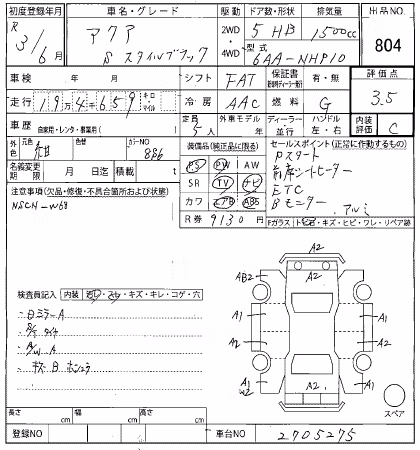 初度登録年月 車名・グレード 駆動 ドア数・形状 排気量 出品NO.
R3/6月 アクア Sスタイルブラック 2WD・4WD 5 HB 1500cc 804
型式 6AA-NHP10
車検 年 月 シフト FAT 保証書 有・無 評価点 3.5
走行 19万4千659 キロ マイル 冷房 AAC 燃料 G 内装評価 C
車歴 自家用・レンタ・事業用( ) 定員 5人 外車モデル 年 ディーラー 並行 ハンドル 左・右
外色 元色 紺 色替 カラーNO 8P6
装備品(純正品に限る) セールスポイント(正常に作動するもの)
PS PW AW Pスタート
SR TV ナビ 前席シートヒーター
カワ エアB ABS ETC
Bモニター アルミ
名義変更期限 月 日迄 積載 t
R券 9130円
注意事項(欠品・修復・不具合箇所および状態) Fガラス トビ石・キズ・ヒビ・ワレ・リペア跡
NSCN-W68
検査員記入 内装 ヨゴレ・スレ・キズ・キレ・コゲ・穴
A2
AB2 A1
A1 A1
A2 A2
A1 A1
W2
A2
スペア
長さ cm 幅 cm 高さ cm
登録NO 車台NO 2705275